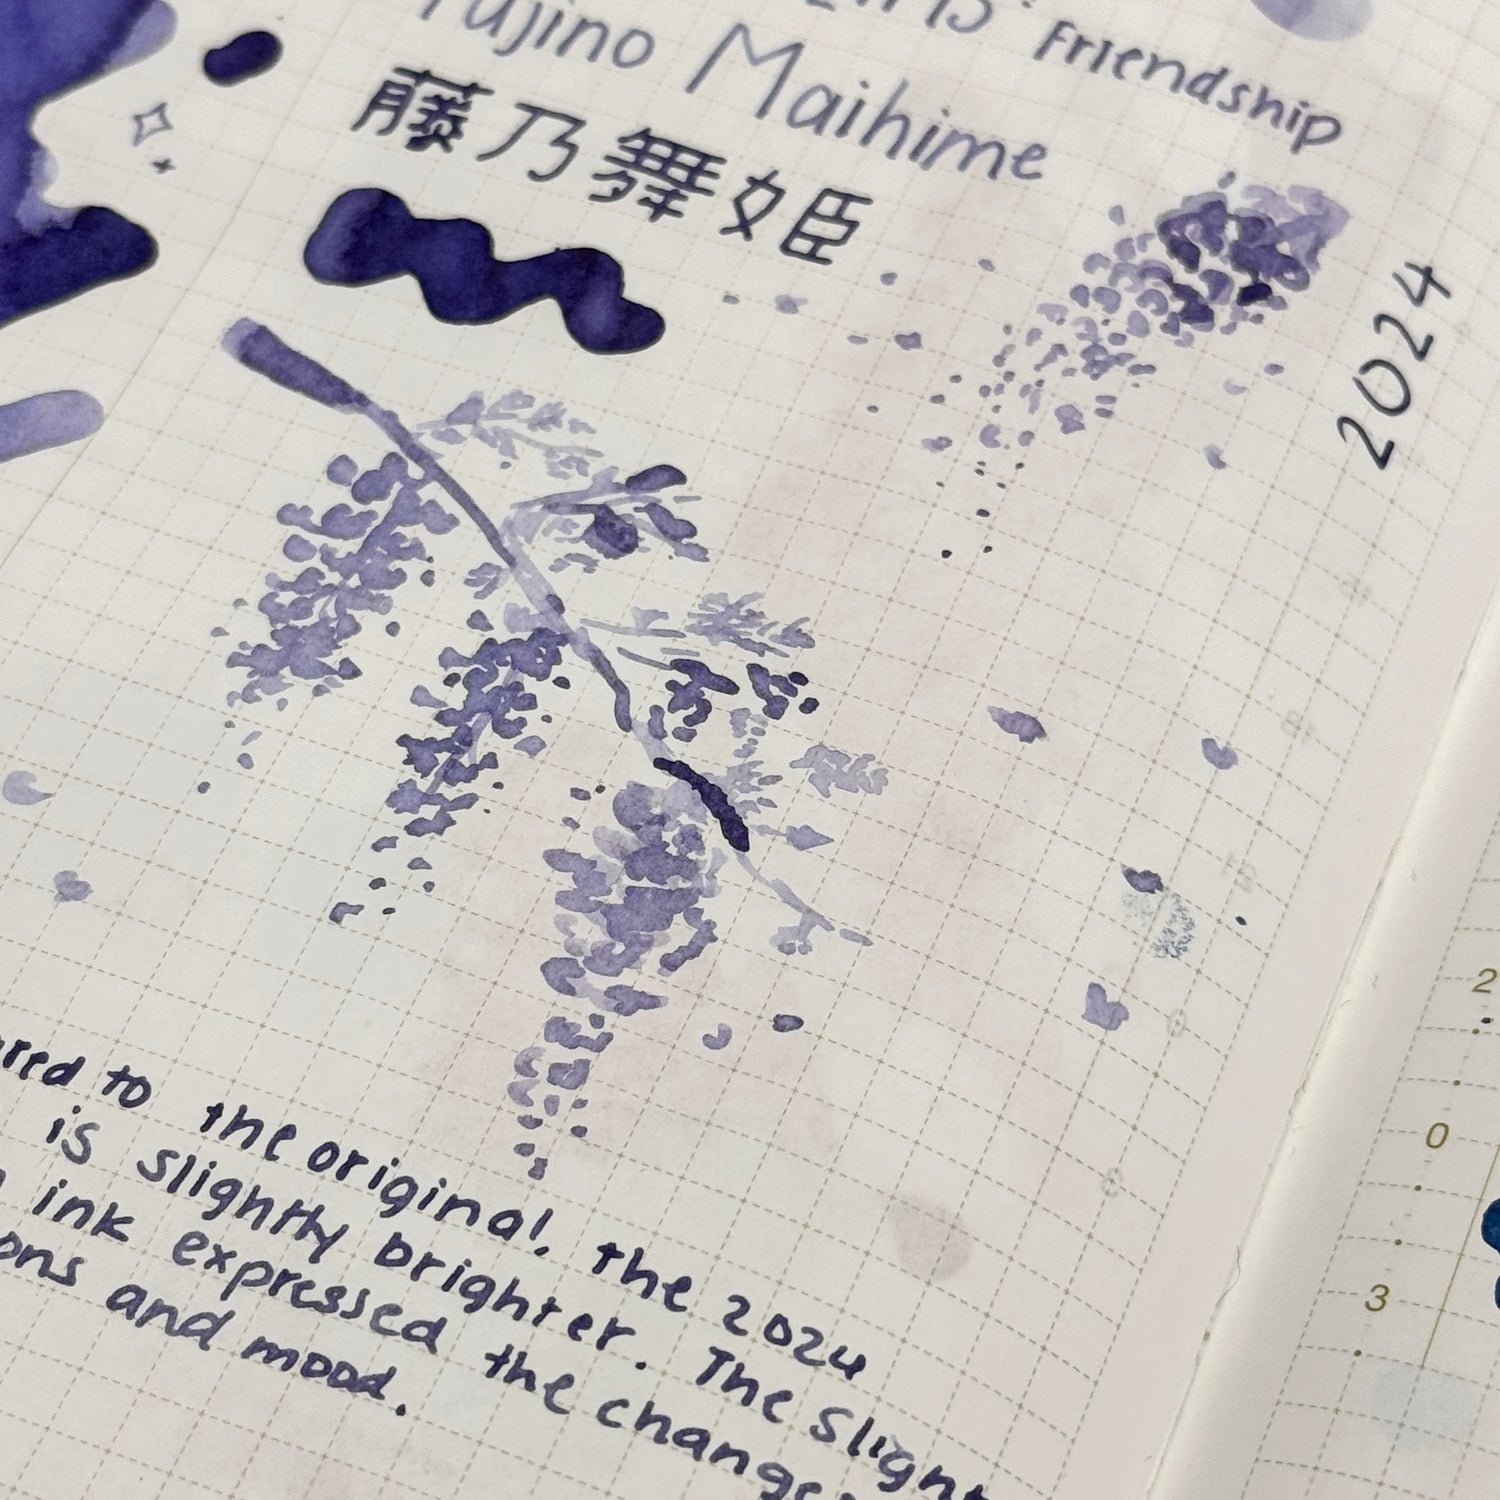 Friendship
Fujino Maihime
藤乃舞姫
2024
to the original, the 2024
is slightly brighter. The slight
ink expressed the change
and mood.
2
0
3